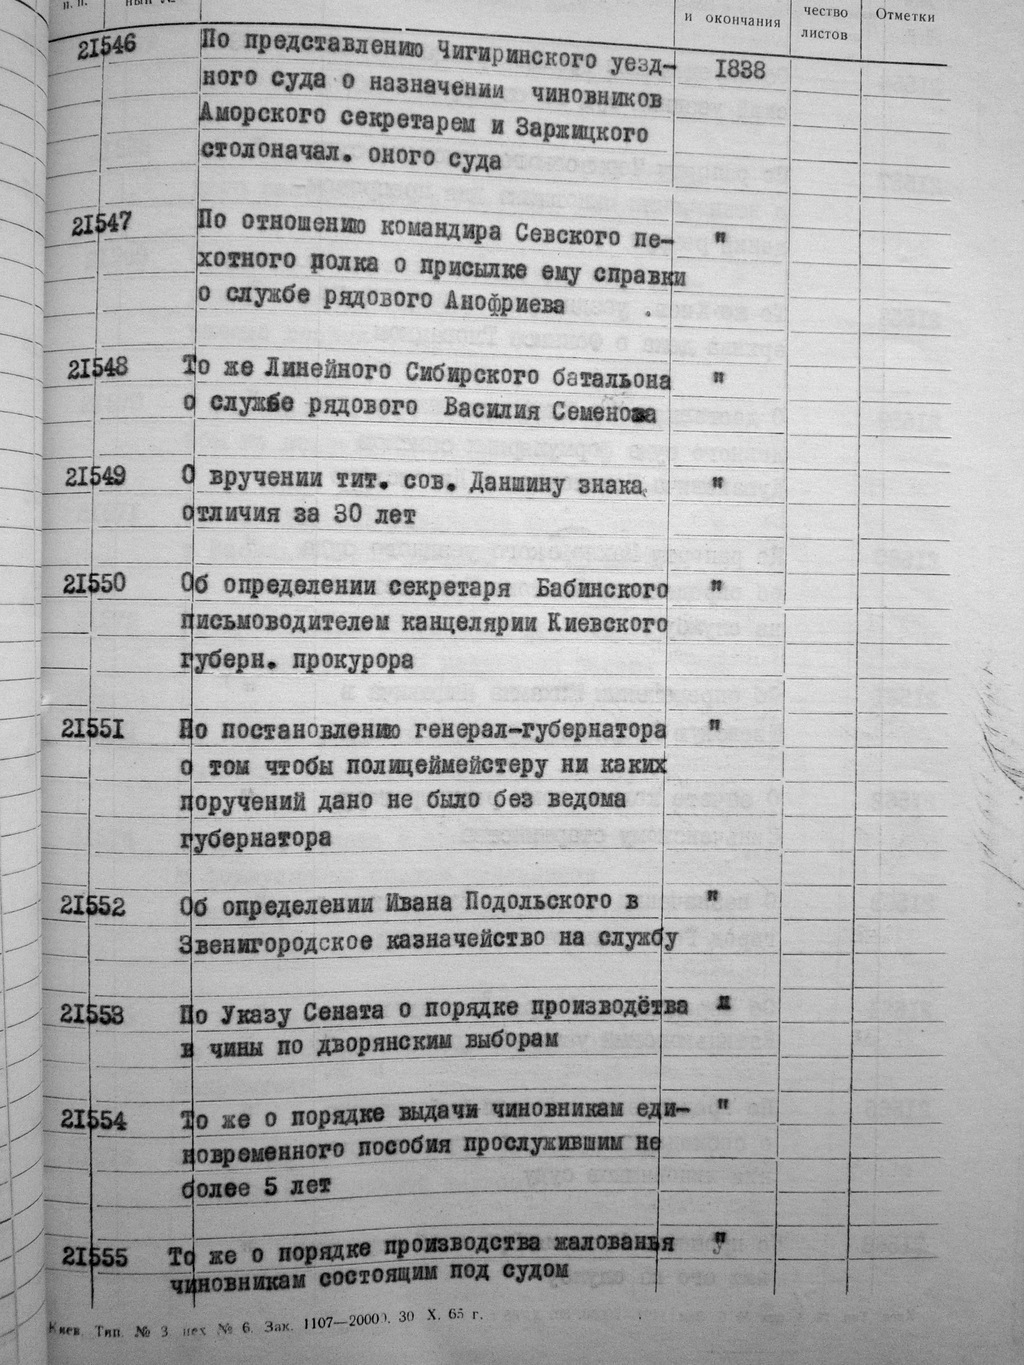 п. п.
и окончания
чество
листов
Отметки
21546 По представлению Чигиринского уезд- 1838
ного суда о назначении чиновников
Аморского секретарем и Заржицкого
столоначал. оного суда
21547 По отношению командира Севского пе- "
хотного полка о присылке ему справки
о службе рядового Анофриева
21548 То же Линейного Сибирского батальона "
о службе рядового Василия Семенова
21549 О вручении тит. сов. Даншину знака "
отличия за 30 лет
21550 Об определении секретаря Бабинского "
письмоводителем канцелярии Киевского
губерн. прокурора
21551 По постановлению генерал-губернатора "
о том чтобы полицеймейстеру ни каких
поручений дано не было без ведома
губернатора
21552 Об определении Ивана Подольского в "
Звенигородское казначейство на службу
21553 По Указу Сената о порядке производства "
в чины по дворянским выборам
21554 То же о порядке выдачи чиновникам еди- "
новременного пособия прослужившим не
более 5 лет
21555 То же о порядке производства жалованья "
чиновникам состоящим под судом
Киев. Тип. № 3 цех № 6. Зак. 1107—20000. 30 X. 65 г.